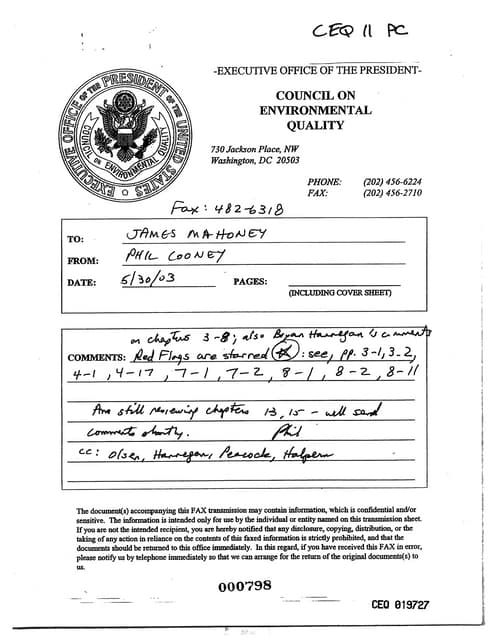 CEQ 11 PC
-EXECUTIVE OFFICE OF THE PRESIDENT-
COUNCIL ON
ENVIRONMENTAL
QUALITY
EXECUTIVE OFFICE OF THE PRESIDENT OF THE UNITED STATES
COUNCIL ON ENVIRONMENTAL QUALITY
730 Jackson Place, NW
Washington, DC 20503
PHONE: (202) 456-6224
FAX: (202) 456-2710
Fax: 482-6318
TO: JAMES MAHONEY
FROM: PHIL COONEY
DATE: 5/30/03 PAGES:
(INCLUDING COVER SHEET)
on chapters 3-8; also Bryan Hannegan's comments
COMMENTS: Red Flags are starred (☆): see, pp. 3-1, 3-2,
4-1, 4-17, 7-1, 7-2, 8-1, 8-2, 8-11
Am still reviewing chapters 13, 15 - will send
comments shortly. Phil
cc: Olsen, Hannegan, Peacock, Halpern
The document(s) accompanying this FAX transmission may contain information, which is confidential and/or
sensitive. The information is intended only for use by the individual or entity named on this transmission sheet.
If you are not the intended recipient, you are hereby notified that any disclosure, copying, distribution, or the
taking of any action in reliance on the contents of this faxed information is strictly prohibited, and that the
documents should be returned to this office immediately. In this regard, if you have received this FAX in error,
please notify us by telephone immediately so that we can arrange for the return of the original documents(s) to
us.
000798
CEQ 019727